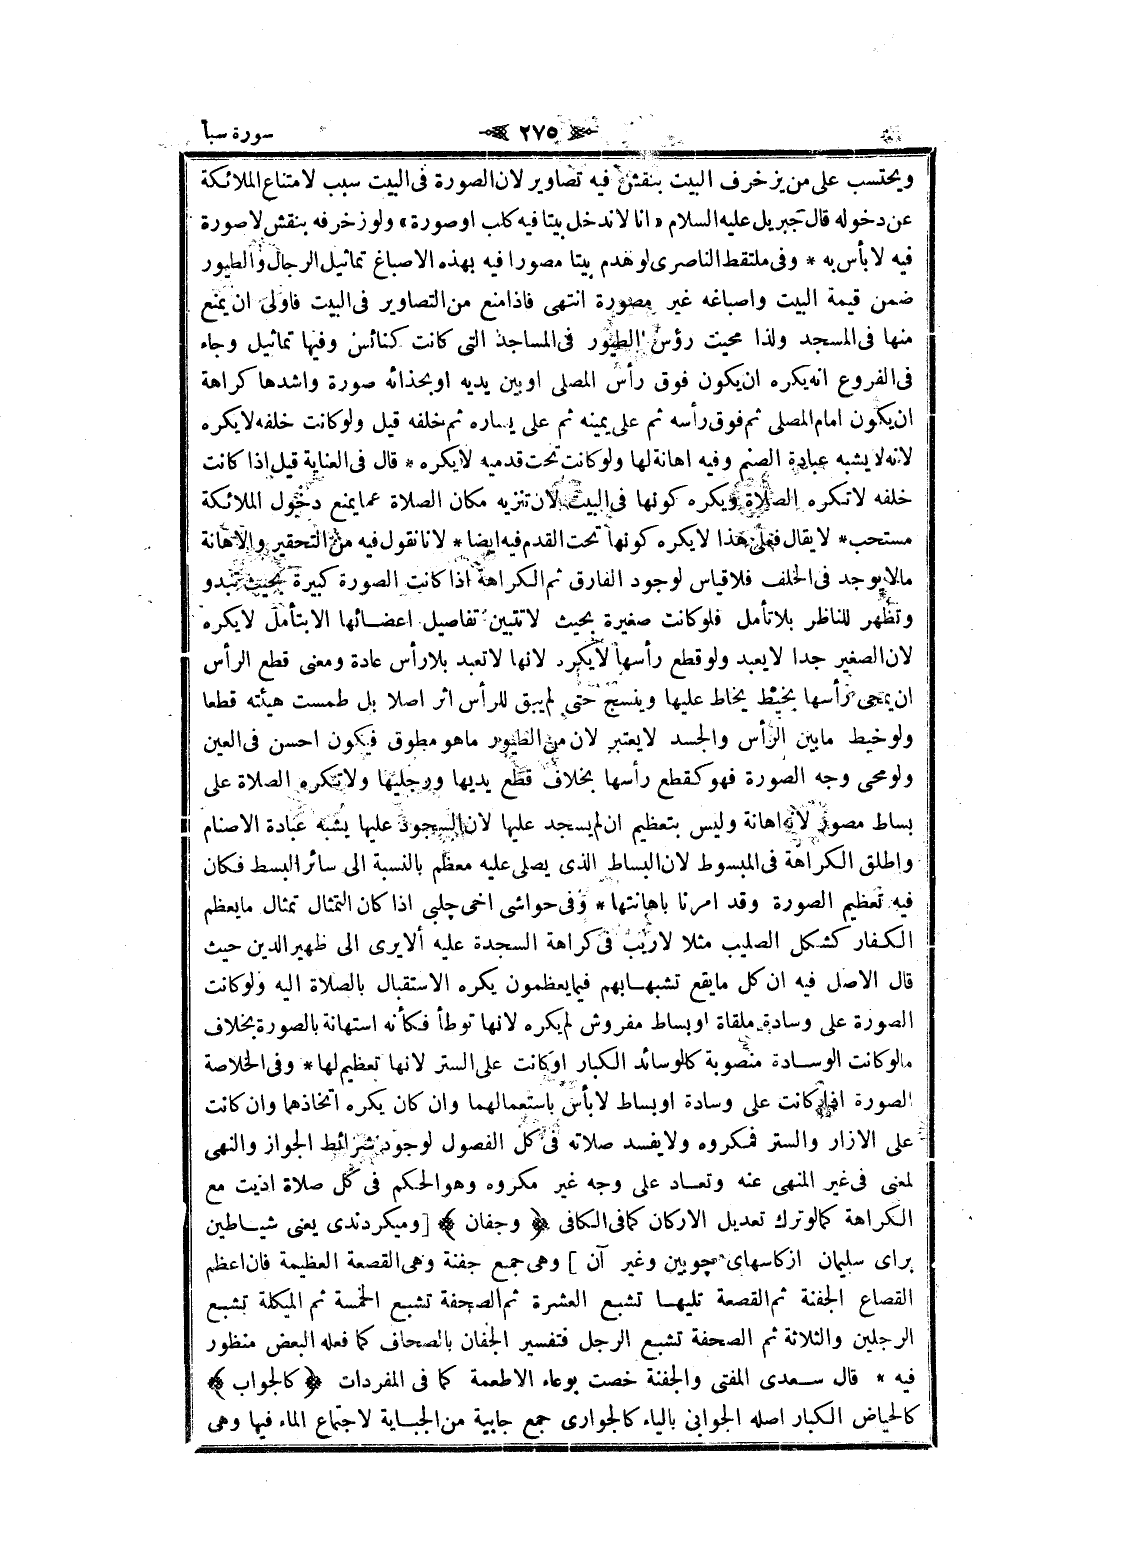 سورة سبأ ٢٧٥
ويحتسب على من يزخرف البيت بنقش فيه تصاوير لان الصورة فى البيت سبب لامتناع الملائكة
عن دخوله قال جبريل عليه السلام «انا لا ندخل بيتا فيه كلب او صورة» ولو زخرفه بنقش لا صورة
فيه لا بأس به * وفى ملتقط الناصرى لو هدم بيتا مصورا فيه بهذه الاصباغ تماثيل الرجال والطيور
ضمن قيمة البيت واصباغه غير مصورة انتهى فاذا منع من التصاوير فى البيت فاولى ان يمنع
منها فى المسجد ولذا محيت رؤس الطيور فى المساجد التى كانت كنائس وفيها تماثيل وجاء
فى الفروع انه يكره ان يكون فوق رأس المصلى او بين يديه او بحذائه صورة واشدها كراهة
ان يكون امام المصلى ثم فوق رأسه ثم على يمينه ثم على يساره ثم خلفه قيل ولو كانت خلفه لا يكره
لانه لا يشبه عبادة الصنم وفيه اهانة لها ولو كانت تحت قدميه لا يكره * قال فى العناية قيل اذا كانت
خلفه لا تكره الصلاة ويكره كونها فى البيت لان تنزيه مكان الصلاة عما يمنع دخول الملائكة
مستحب * لا يقال فعلى هذا لا يكره كونها تحت القدم فيه ايضا * لانا نقول فيه من التحقير والاهانة
مالا يوجد فى الخلف فلا قياس لوجود الفارق ثم الكراهة اذا كانت الصورة كبيرة بحيث تبدو
وتظهر للناظر بلا تأمل فلو كانت صغيرة بحيث لا تتبين تفاصيل اعضائها الا بتأمل لا يكره
لان الصغير جدا لا يعبد ولو قطع رأسها لا يكره لانها لا تعبد بلا رأس عادة ومعنى قطع الرأس
ان يمحى رأسها بخيط يخاط عليها وينسج حتى لم يبق للرأس اثر اصلا بل طمست هيئته قطعا
ولو خيط ما بين الرأس والجسد لا يعتبر لان من الطيور ما هو مطوق فيكون احسن فى العين
ولو محى وجه الصورة فهو كقطع رأسها بخلاف قطع يديها ورجليها ولا تكره الصلاة على
بساط مصور لانه اهانة وليس بتعظيم ان لم يسجد عليها لان السجود عليها يشبه عبادة الاصنام
واطلق الكراهة فى المبسوط لان البساط الذى يصلى عليه معظم بالنسبة الى سائر البسط فكان
فيه تعظيم الصورة وقد امرنا باهانتها * وفى حواشى اخى چلبى اذا كان التمثال تمثال ما يعظم
الكفار كشكل الصليب مثلا لا ريب فى كراهة السجدة عليه ألا يرى الى ظهير الدين حيث
قال الاصل فيه ان كل ما يقع تشبها بهم فيما يعظمون يكره الاستقبال بالصلاة اليه ولو كانت
الصورة على وسادة ملقاة او بساط مفروش لم يكره لانها توطأ فكأنه استهانة بالصورة بخلاف
ما لو كانت الوسادة منصوبة كالوسائد الكبار او كانت على الستر لانها تعظيم لها * وفى الخلاصة
الصورة اذا كانت على وسادة او بساط لا بأس باستعمالهما وان كان يكره اتخاذهما وان كانت
على الازار والستر فمكروه ولا يفسد صلاته فى كل الفصول لوجود شرائط الجواز والنهى
لمعنى فى غير المنهى عنه وتعاد على وجه غير مكروه وهو الحكم فى كل صلاة اديت مع
الكراهة كما لو ترك تعديل الاركان كما فى الكافى ﴿ وجفان ﴾ [وميكردندى يعنى شياطين
براى سليمان از كاسهاى چوبين وغير آن] وهى جمع جفنة وهى القصعة العظيمة فان اعظم
القصاع الجفنة ثم القصعة تليها تشبع العشرة ثم الصحفة تشبع الخمسة ثم الميكلة تشبع
الرجلين والثلاثة ثم الصحفة تشبع الرجل فتفسير الجفان بالصحاف كما فعله البعض منظور
فيه * قال سعدى المفتى والجفنة خصت بوعاء الاطعمة كما فى المفردات ﴿ كالجواب ﴾
كالحياض الكبار اصله الجوابى بالياء كالجوارى جمع جابية من الجباية لاجتماع الماء فيها وهى